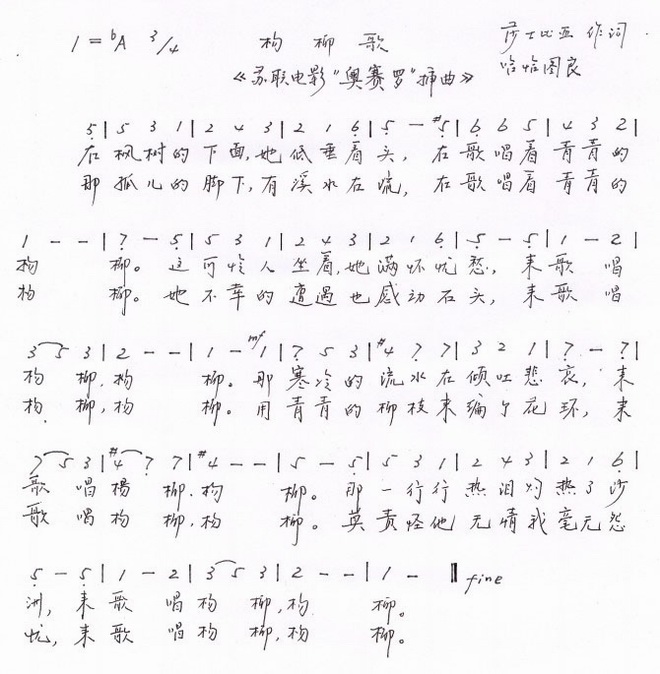 1=♭A 3/4 杨柳歌 莎士比亚 作词
《苏联电影"奥赛罗"插曲》 哈恰图良
5̣ | 5 3 1 | 2 4 3 | 2 1 6̣ | 5̣ — #5̣ | 6̣ 6̣ 5 | 4 3 2 |
在 枫树的 下面,她 低垂着 头, 在 歌唱着 青青的
那 孤儿的 脚下,有 溪水在 流, 在 歌唱着 青青的
1 — — | 7̣ — 5̣ | 5 3 1 | 2 4 3 | 2 1 6̣ | 5̣ — 5̣ | 1 — 2 |
杨 柳。 这 可怜人 坐着,她 满怀忧 愁, 来 歌 唱
杨 柳。 她 不幸的 遭遇也 感动石 头, 来 歌 唱
3 5 3 | 2 — — | 1 — mf 1 | 7̣ 5 3 | #4 7̣ 7̣ | 3 2 1 | 7̣ — 7̣ |
杨 柳,杨 柳。 那 寒冷的 流水在 倾吐悲 哀, 来
杨 柳,杨 柳。 用 青青的 柳枝来 编个花 环, 来
7 5 3 | #4 7̣ 7̣ | #4 — — | 5 — 5̣ | 5 3 1 | 2 4 3 | 2 1 6̣ |
歌 唱 楊 柳,杨 柳。 那 一行行 热泪灼 热了沙
歌 唱 杨 柳,杨 柳。 莫 责怪他 无情我 毫无怨
5̣ — 5̣ | 1 — 2 | 3 5 3 | 2 — — | 1 — ‖ fine
洲, 来 歌 唱 杨 柳,杨 柳。
忧, 来 歌 唱 杨 柳,杨 柳。